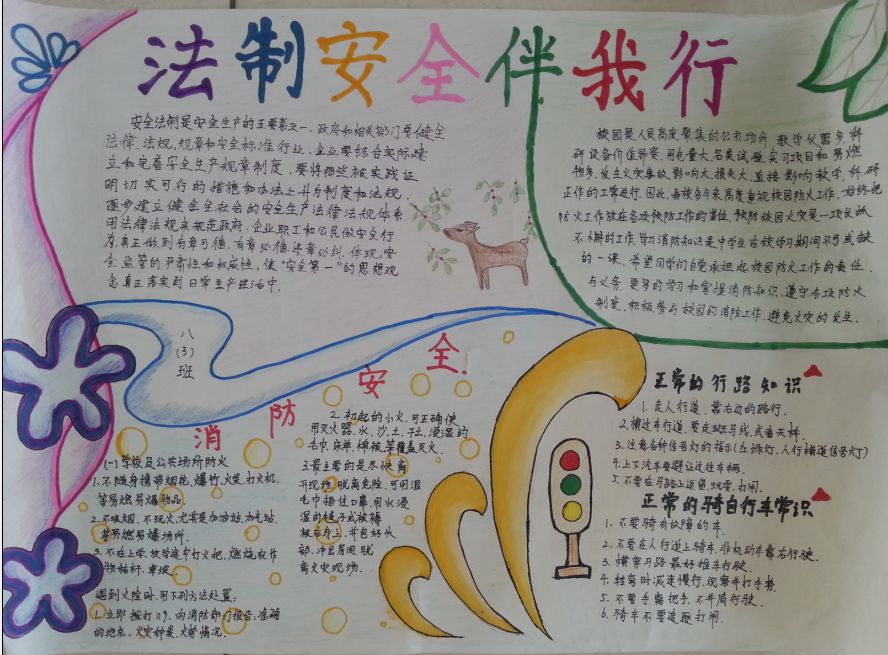 法制安全伴我行
安全法制是安全生产的五要素之一，政府和相关部门要健全
法律、法规、规章和安全标准行业，企业要结合实际建
立和完善安全生产规章制度，要将那些被实践证
明切实可行的措施和办法上升为制度和法规，
逐步建立健全全社会的安全生产法律法规体系
用法律法规来规范政府、企业职工和公民做安全行
为真正做到有章可循、有章必循、违章必纠、体现安
全监管的严肃性和权威性，使“安全第一”的思想观
念真正落实到日常生产生活中.
校园是人员高度聚集的公共场所，教学仪器多，科
研设备价值昂贵，用电量大，各类试验实习项目和易燃
物多，发生火灾事故影响大，损失大，直接影响教学，科研
正作的工常进行.因此，每校各年来高度重视校园防火工作，始终把
防火工作放在各项预防工作的首位，预防校园火灾是一项长抓
不懈的工作，学习消防知识是中学生在校学习期间不可或缺
的一课，希望同学们自觉承担起校园防火工作的责任，
与义务，更多的学习和掌握消防知识，遵守各项防火
制度，积极参与校园的消防工作，避免火灾的发生.
八
(3)
班
消防安全.
(一)学校及公共场所防火
1.不随身携带烟花，爆竹，火柴，打火机，
等易燃易爆物品
2.不吸烟，不玩火，尤其是加油站，加气站，
等易燃易爆场所.
3.不在上学，放学途中打火把，燃烧农作
物秸秆，草坡.
遇到火险时，用下列方法处置：
1.立即拨打119，向消防部门报告；准确
的地点，火灾种类，火龄情况.
2.初起的小火，可正确使
用灭火器，水，沙，土，干土，浸湿的
毛巾，床单，棉被，等覆盖灭火.
3.最主要的是尽快离
开现场，脱离危险，可用湿
毛巾捂住口鼻，用水浸
湿的毯子或被褥
披在身上，并包好头
部，冲出房间，脱
离火灾现场.
正常的行路知识
1.走人行道，靠右边的路行.
2.横过车行道，要走斑马线，或者天桥.
3.注意各种信号灯的指示(红绿灯，人行横道信号灯)
4.上下汽车要避让过往车辆.
5.不要在马路上追逐，玩耍，打闹.
正常的骑自行车常识
1.不要骑有故障的车.
2.不要在人行道上骑车，非机动车靠右行驶.
3.横穿马路最好推车行驶.
4.转弯时减速慢行，观察并打手势.
5.不要手离把手，不并肩行驶.
6.骑车不要追逐打闹.